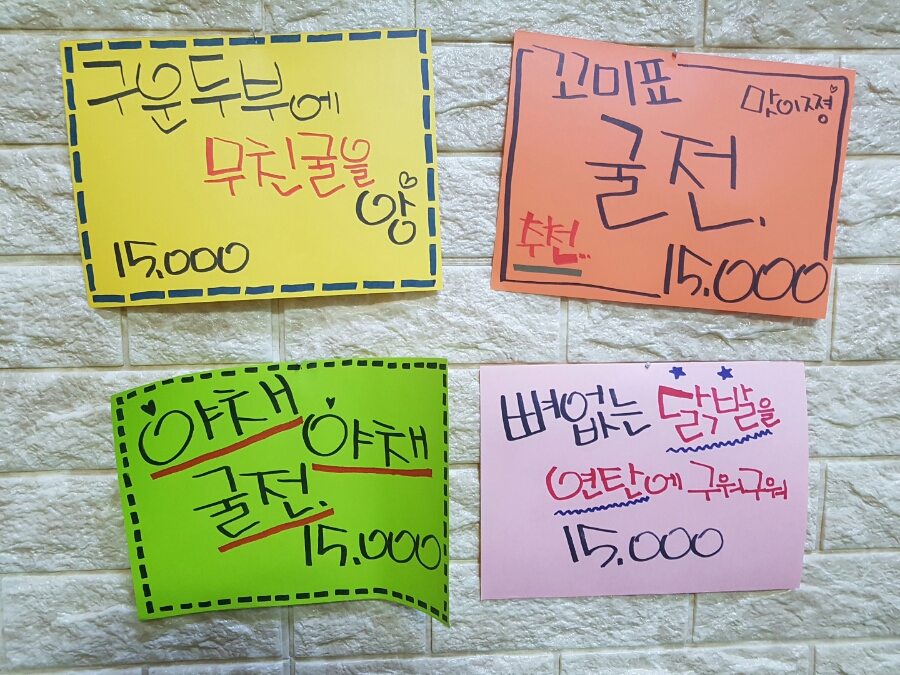 구운두부에
무친굴을
앙
15.000
꼬미표
맛이쪙
굴전.
추천..
15.000
야채 야채
굴전.
15.000
뼈없는 닭발을
연탄에 구워구워
15.000